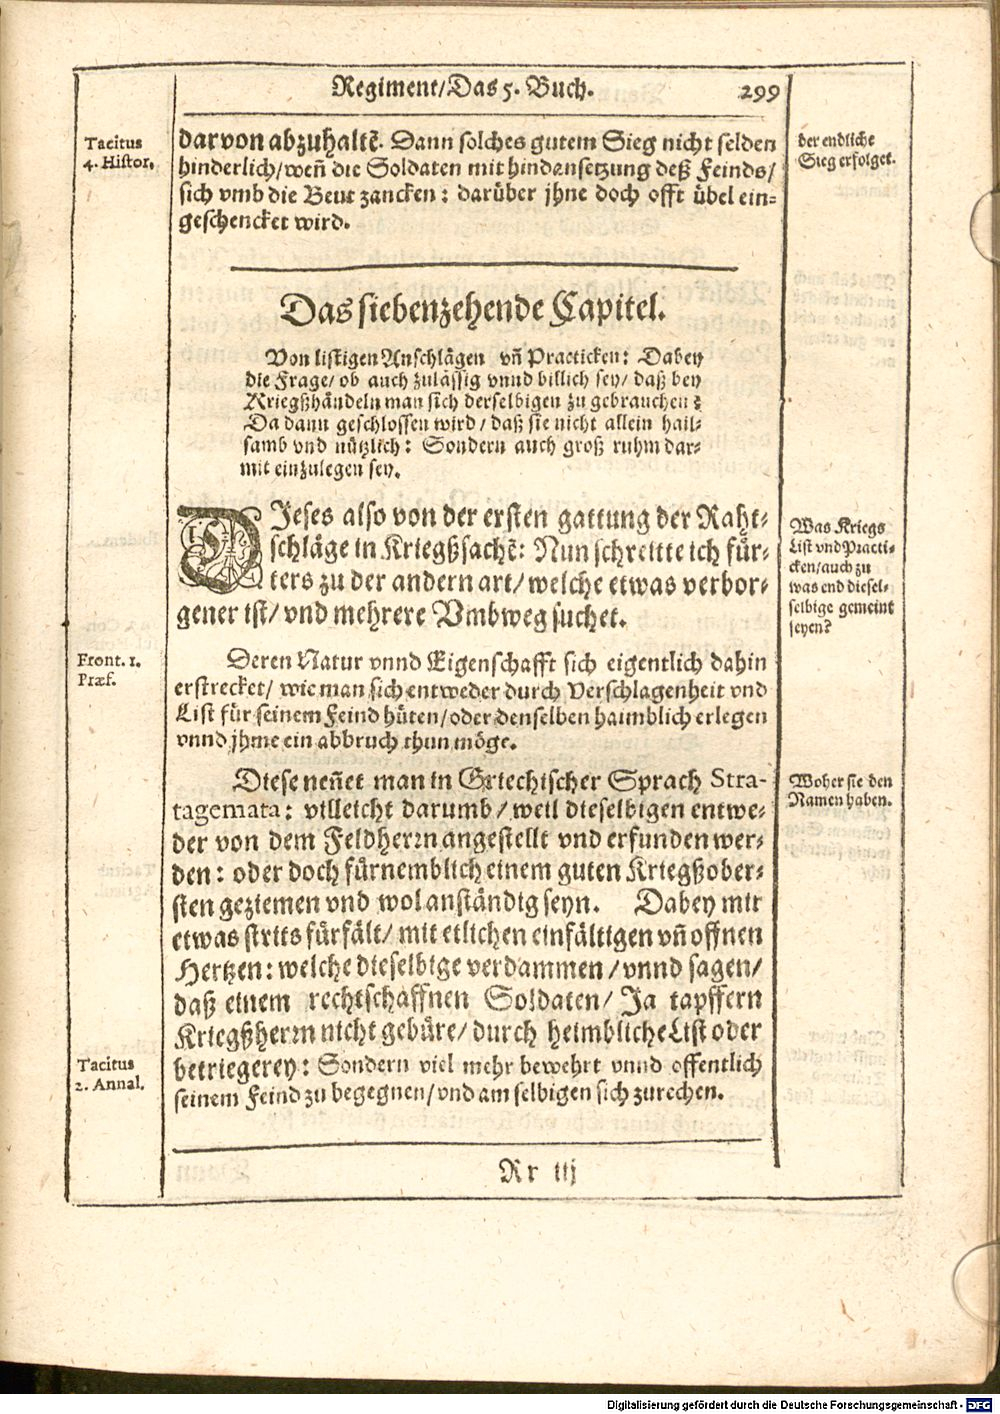 Regiment/Das 5. Buch. 299
Tacitus
4. Histor.
darvon abzuhaltē. Dann solches gutem Sieg nicht selden
hinderlich/weñ die Soldaten mit hindansetzung deß Feinds/
sich vmb die Beut zancken: darüber jhne doch offt übel ein-
geschencket wird.
der endliche
Sieg erfolget.
Das siebenzehende Capitel.
Von listigen Anschlägen vñ Practicken: Dabey
die Frage/ ob auch zulässig vnnd billich sey/ daß bey
Kriegßhändeln man sich derselbigen zu gebrauchen?
Da dann geschlossen wird/ daß sie nicht allein hail-
samb vnd nützlich: Sondern auch groß ruhm dar-
mit einzulegen sey.
DIeses also von der ersten gattung der Raht-
schläge in Kriegßsachē: Nun schreitte ich für-
ters zu der andern art/ welche etwas verbor-
gener ist/ vnd mehrere Vmbweg suchet.
Was Kriegs
List vnd Practi-
cken/auch zu
was end diesel-
selbige gemeint
seyen?
Front. 1.
Præf.
Deren Natur vnnd Eigenschafft sich eigentlich dahin
erstrecket/ wie man sich entweder durch Verschlagenheit vnd
List für seinem Feind hüten/oder denselben haimblich erlegen
vnnd jhme ein abbruch thun möge.
Diese neñet man in Griechischer Sprach Stra-
tagemata: villeicht darumb/ weil dieselbigen entwe-
der von dem Feldherrn angestellt vnd erfunden wer-
den: oder doch fürnemblich einem guten Kriegßober-
sten geziemen vnd wol anständig seyn. Dabey mir
etwas strits fürfält/ mit etlichen einfältigen vñ offnen
Hertzen: welche dieselbige verdammen/ vnnd sagen/
daß einem rechtschaffnen Soldaten/ Ja tapffern
Kriegßherrn nicht gebüre/ durch heimbliche List oder
betriegerey: Sondern viel mehr bewehrt vnnd offentlich
seinem Feind zu begegnen/vnd am selbigen sich zurechen.
Woher sie den
Namen haben.
Tacitus
2. Annal.
Rr iij
Digitalisierung gefördert durch die Deutsche Forschungsgemeinschaft - DFG